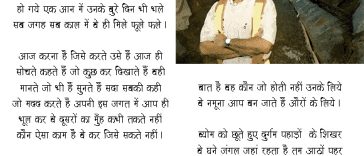 हो गये एक आन में उनके बुरे दिन भी भले
सब जगह सब काल में वे ही मिले फूले फले ।
आज करना है जिसे करते उसे हैं आज ही
सोचते कहते हैं जो कुछ कर दिखाते हैं वही
मानते जो भी हैं सुनते हैं सदा सबकी कही
जो मदद करते हैं अपनी इस जगत में आप ही
भूल कर वे दूसरों का मुँह कभी तकते नहीं
कौन ऐसा काम है वे कर जिसे सकते नहीं ।
बात है वह कौन जो होती नहीं उनके लिये
वे नमूना आप बन जाते हैं औरों के लिये ।
व्योम को छूते हुए दुर्गम पहाड़ों के शिखर
वे घने जंगल जहां रहता है तम आठों पहर